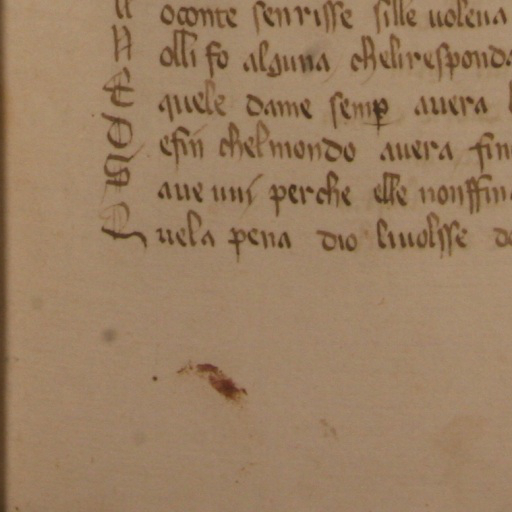 oconte senrisse sille voleva
N olli fo alguna chelirespond
E quele dame semp avera
D efin chel mondo avera fin
S ave vui perche elle nonffin
Q uela pena dio livolsse de